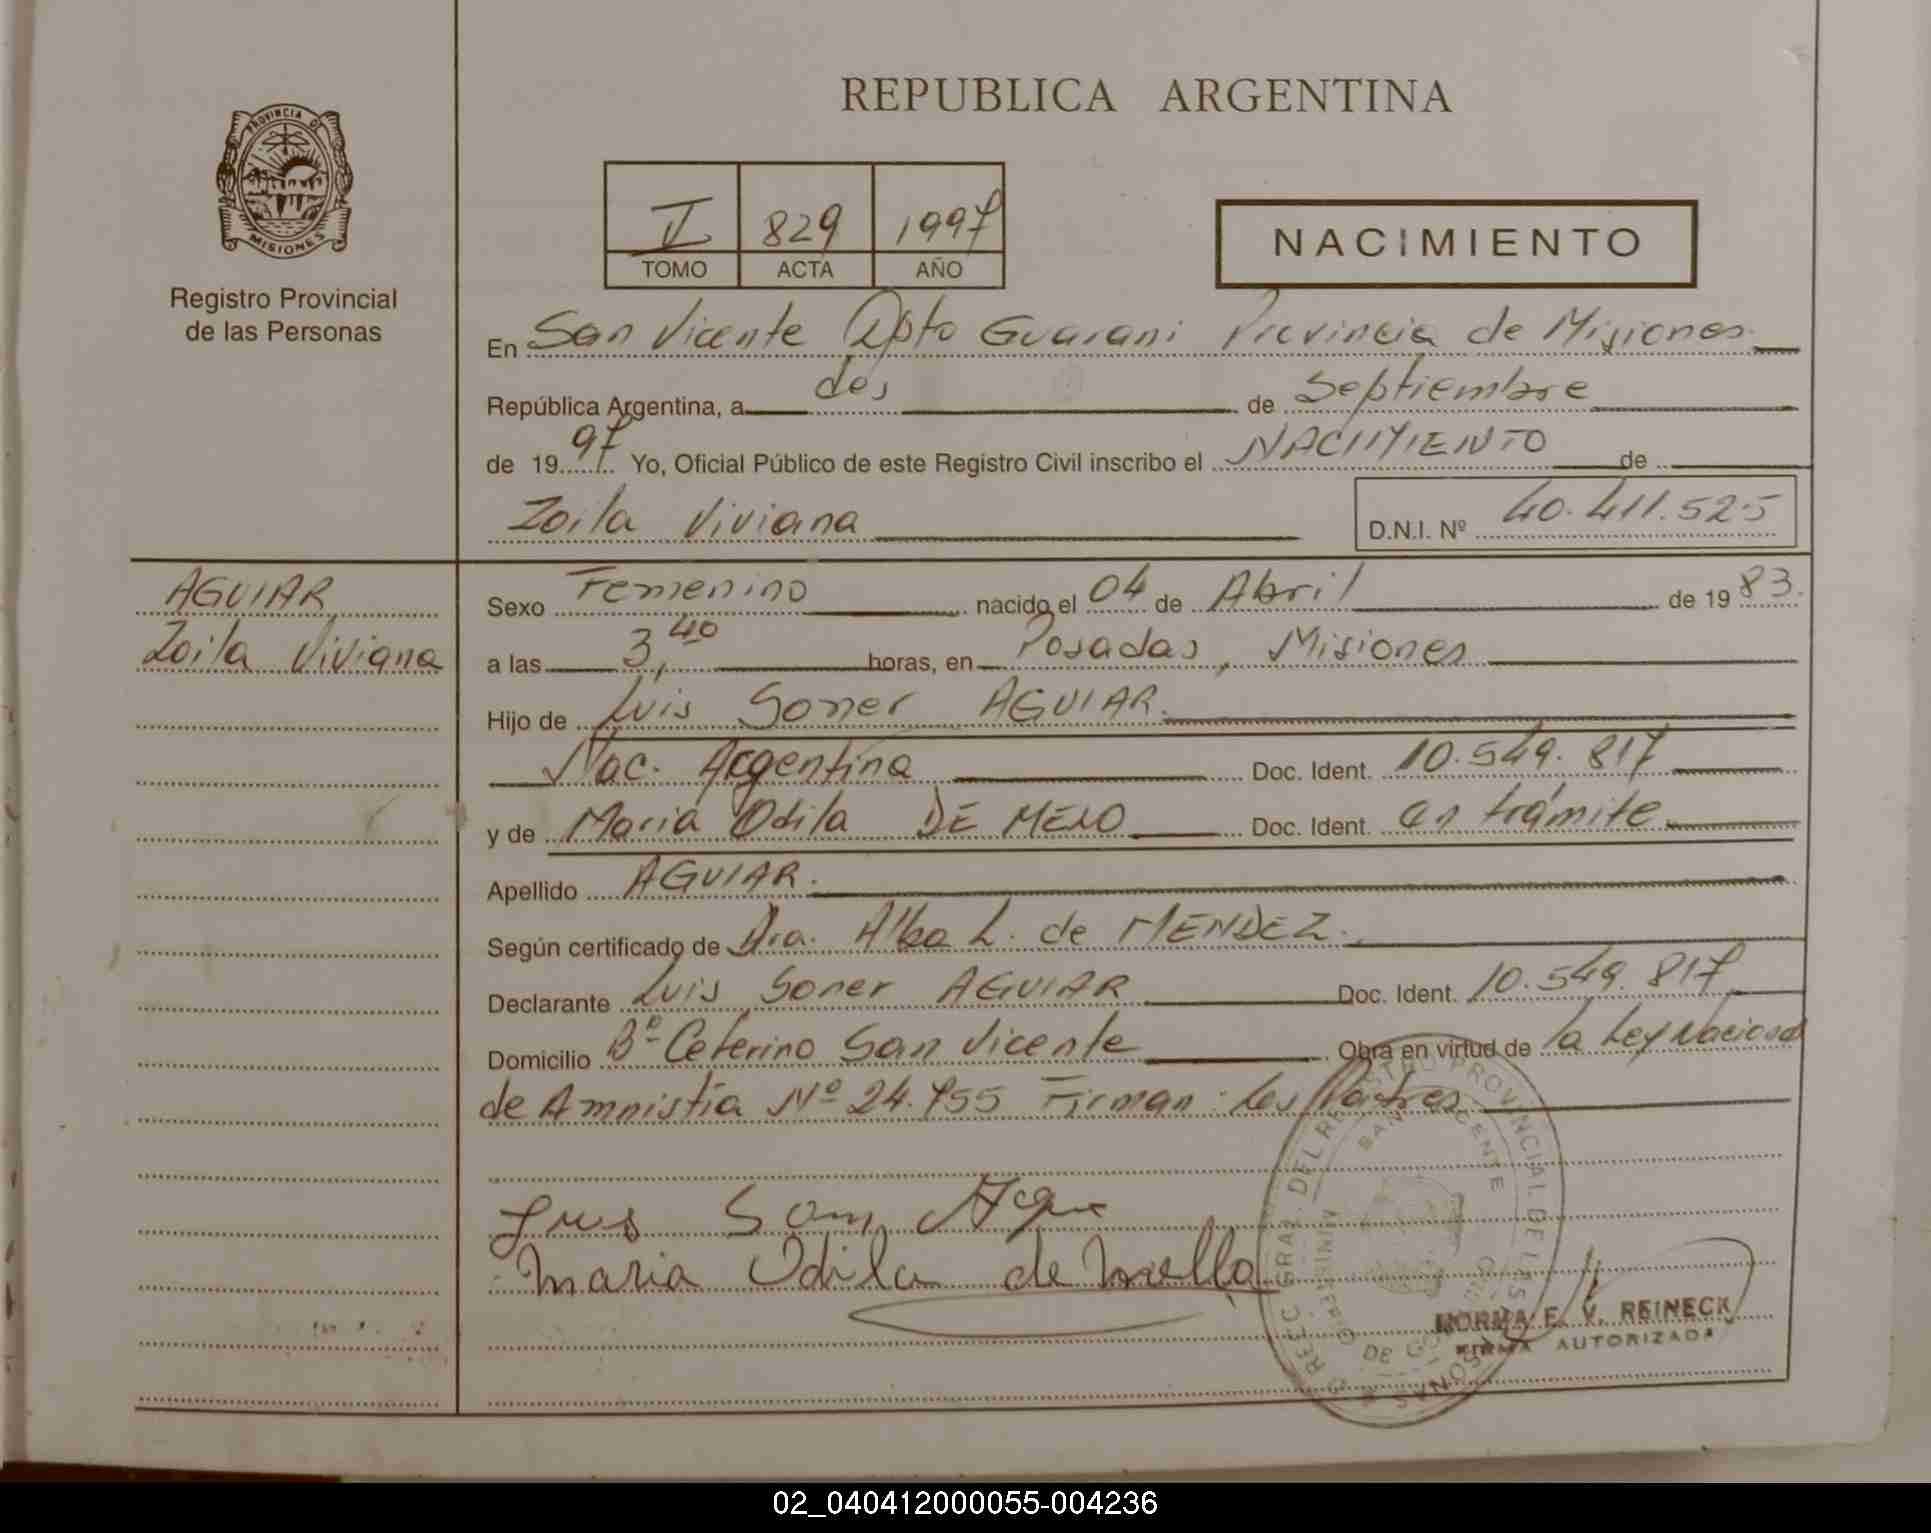 REPUBLICA ARGENTINA
PROVINCIA DE
MISIONES
Registro Provincial
de las Personas
V 829 1997
TOMO ACTA AÑO
NACIMIENTO
En San Vicente Dpto Guarani Provincia de Misiones
República Argentina, a dos de Septiembre
de 1997 Yo, Oficial Público de este Registro Civil inscribo el NACIMIENTO de
Zoila Viviana D.N.I. Nº 40.411.525
AGUIAR
Zoila Viviana
Sexo Femenino nacido el 04 de Abril de 1983.
a las 3,40 horas, en Posadas, Misiones
Hijo de Luis Somer AGUIAR.
Nac. Argentina Doc. Ident. 10.549.817
y de Maria Odila DE MELO Doc. Ident. en trámite
Apellido AGUIAR.
Según certificado de Dra. Alba L. de MENDEZ.
Declarante Luis Somer AGUIAR Doc. Ident. 10.549.817
Domicilio Bº Ceferino San Vicente Obra en virtud de la Ley Nacional
de Amnistía Nº 24.755 Firman: Los Padres
Luis Som
Maria Odila de Mello
REGISTRO PROVINCIAL DE LAS PERSONAS
SAN VICENTE
NORMA E. V. REINECK
FIRMA AUTORIZADA
02_040412000055-004236